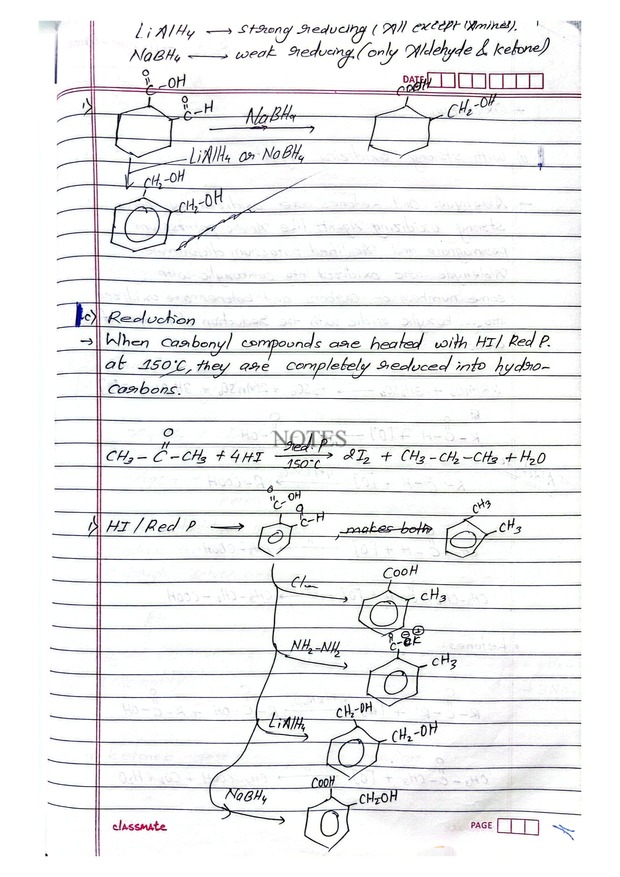 LiAlH4 → strong reducing (All except Amines).
NaBH4 → weak reducing (only Aldehyde & ketone)
DATE
i)
O
C-OH
O
C-H
NaBH4
COOH
CH2-OH
LiAlH4 or NaBH4
CH2-OH
CH2-OH
c) Reduction
→ When carbonyl compounds are heated with HI/Red P.
at 150°C, they are completely reduced into hydro-
carbons.
NOTES
O
CH3-C-CH3 + 4HI red P 150°C → 2I2 + CH3-CH2-CH3 + H2O
i) HI/Red P →
O
C-OH
O
C-H
, makes both
CH3
CH3
Clm
COOH
CH3
NH2-NH2
CH3
LiAlH4
CH2-OH
CH2-OH
NaBH4
COOH
CH2OH
classmate
PAGE